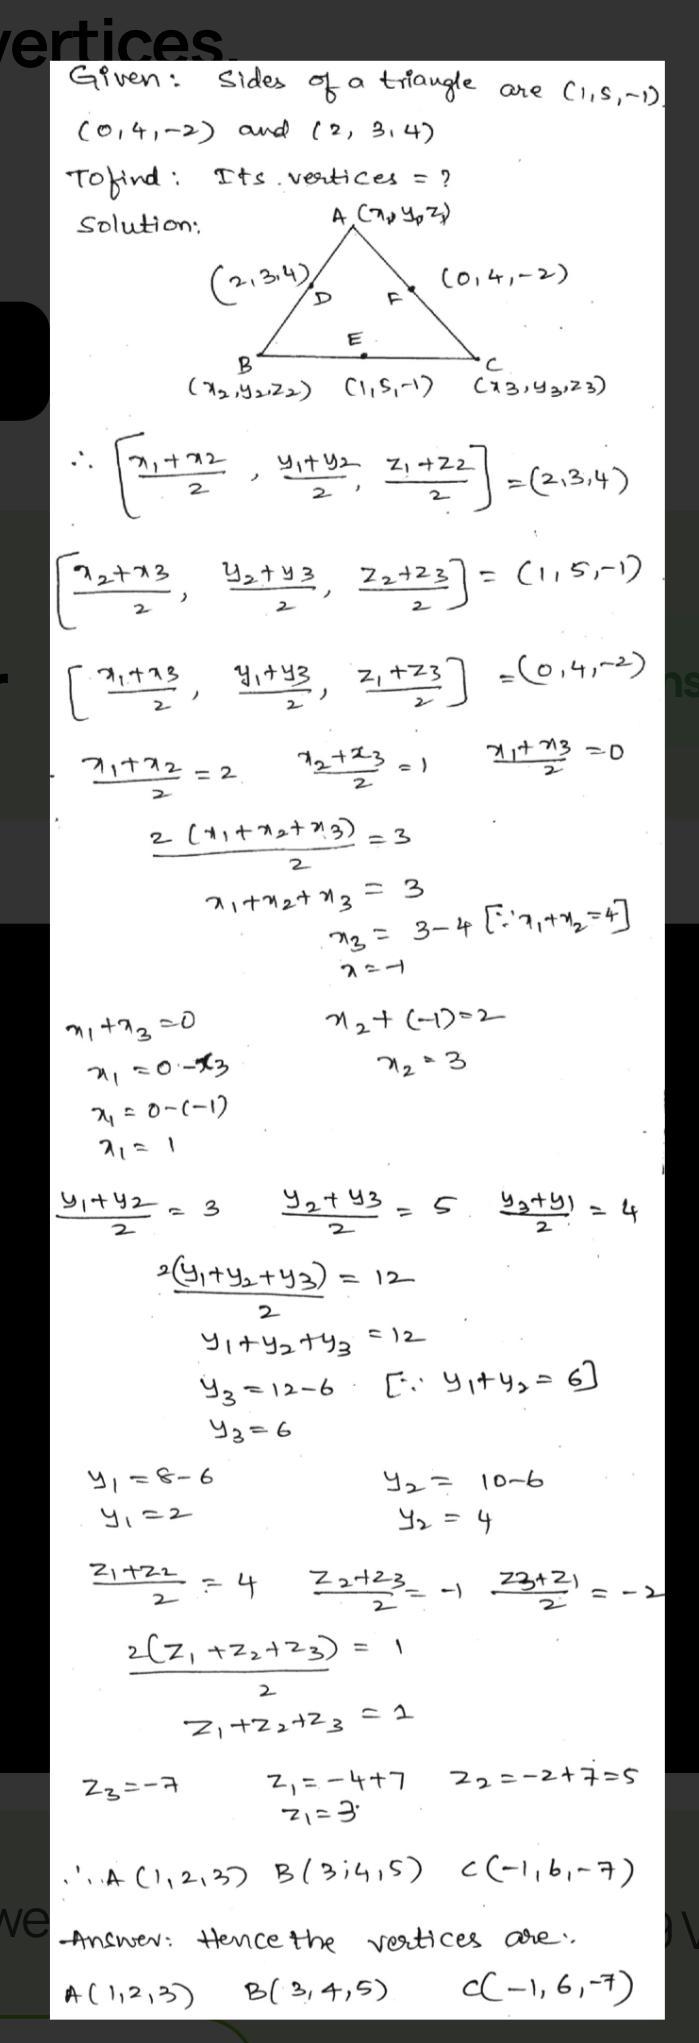 vertices.
Given: Sides of a triangle are (1,5,-1)
(0,4,-2) and (2, 3, 4)
To find: Its vertices = ?
Solution:
A (x₁, y₁, z₁)
(2,3,4) D F (0,4,-2)
E
B C
(x₂,y₂,z₂) (1,5,-1) (x3,y3,z3)
∴ [(x₁+x2)/2, (y₁+y₂)/2, (z₁+z2)/2] = (2,3,4)
[(x₂+x3)/2, (y₂+y3)/2, (z₂+z3)/2] = (1,5,-1)
[(x₁+x3)/2, (y₁+y3)/2, (z₁+z3)/2] = (0,4,-2)
(x₁+x₂)/2 = 2 (x₂+x₃)/2 = 1 (x₁+x3)/2 = 0
2(x₁+x₂+x3)/2 = 3
x₁+x₂+x₃ = 3
x₃ = 3-4 [∵ x₁+x₂=4]
x = -1
x₁+x₃=0 x₂+(-1)=2
x₁ = 0-x₃ x₂ = 3
x₁ = 0-(-1)
x₁ = 1
(y₁+y₂)/2 = 3 (y₂+y3)/2 = 5 (y₃+y₁)/2 = 4
2(y₁+y₂+y3)/2 = 12
y₁+y₂+y₃ = 12
y₃ = 12-6 [∵ y₁+y₂ = 6]
y₃ = 6
y₁ = 8-6 y₂ = 10-6
y₁ = 2 y₂ = 4
(z₁+z2)/2 = 4 (z₂+z3)/2 = -1 (z3+z₁)/2 = -2
2(z₁+z₂+z3)/2 = 1
z₁+z₂+z₃ = 1
z₃ = -7 z₁ = -4+7 z₂ = -2+7=5
z₁ = 3
∴ A (1,2,3) B(3,4,5) C(-1,6,-7)
Answer: Hence the vertices are:
A(1,2,3) B(3,4,5) C(-1,6,-7)